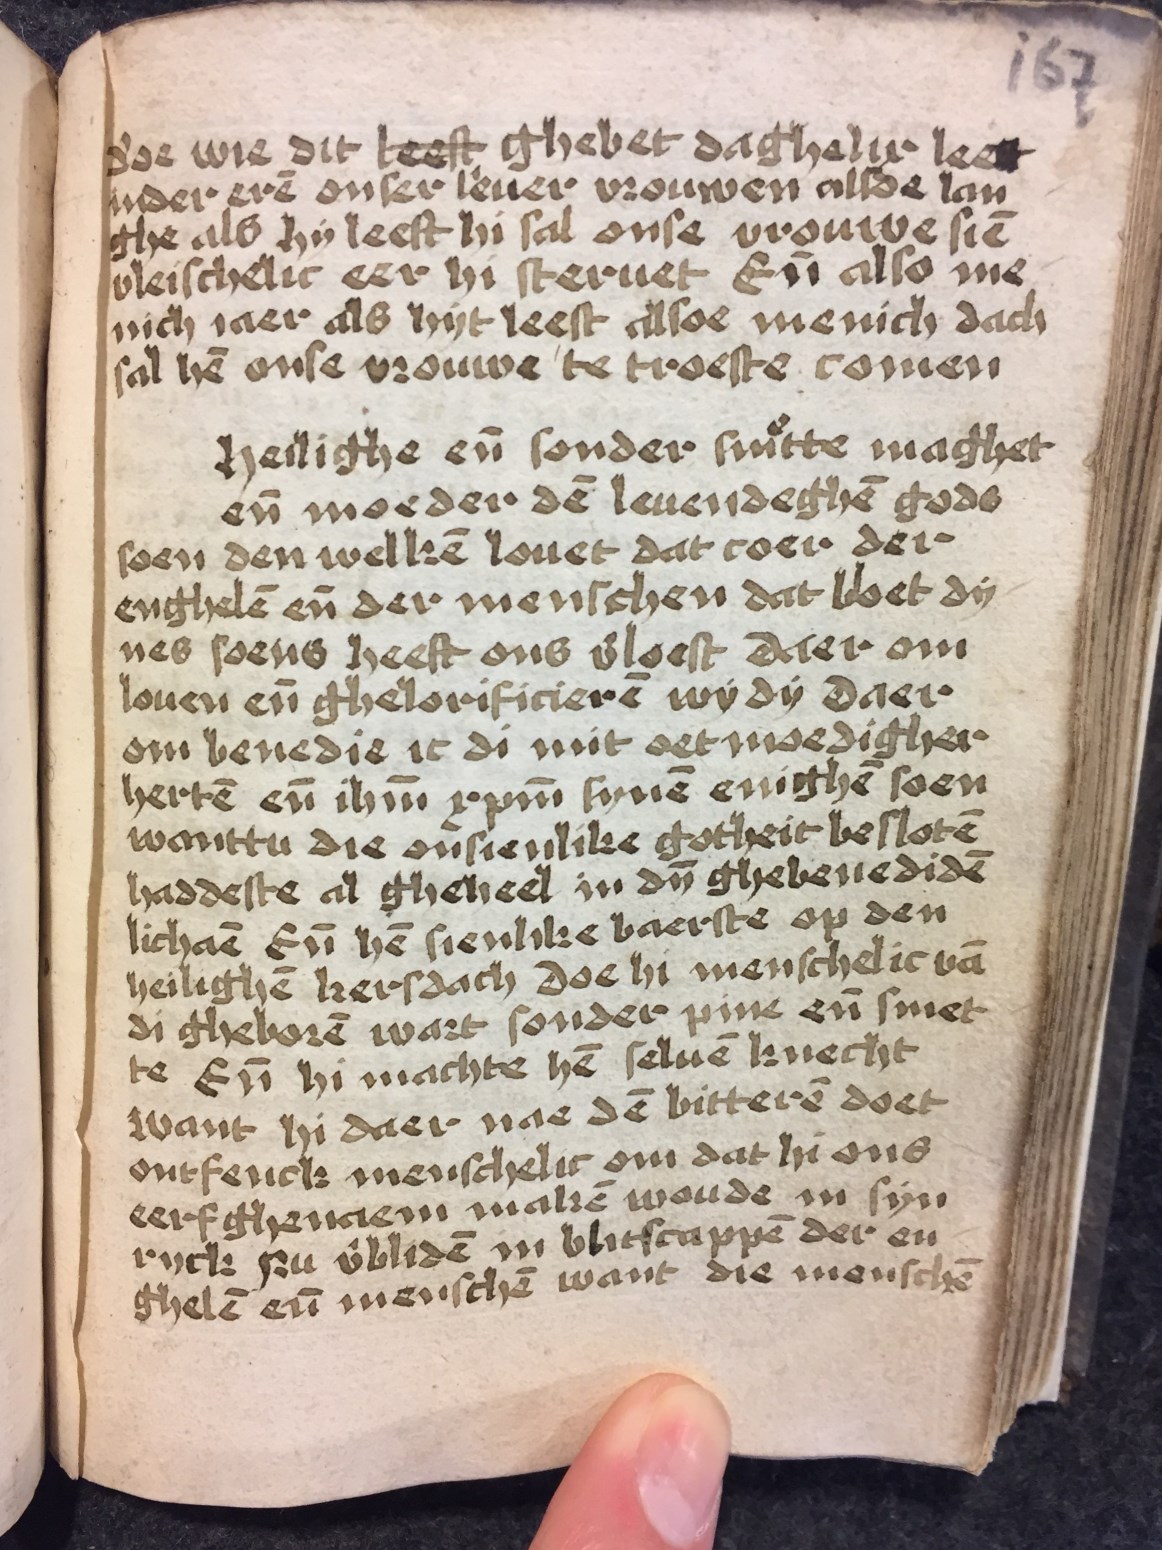 167
doe wie dit leeft ghebet daghelic leest
inder erē onser lieuer vrouwen alsoe lan
ghe als hij leest hi sal onse vrouwe siē
vleischelic eer hi steruet Eñ also me
nich iaer als hijt leest alsoe menich dach
sal hē onse vrouwe te troeste comen
Heilighe eñ sonder smette maghet
eñ moeder dē leuendeghē gods
soen den welkē louet dat coer der
enghelē eñ der menschen dat bloet dij
nes soens heeft ons v̄loest Daer om
louen eñ ghelorificierē wij dij Daer
om benedie ic di mit oetmoedigher
hertē eñ ihm̄ xpm̄ synē enighē soen
wanttu die onsienlike gotheit beslotē
haddeste al gheheel in dȳ ghebenedidē
lichaē Eñ hē sienlike baerste op den
heilighē kersdach Doe hi menschelic vā
di gheborē wart sonder pine eñ smet
te Eñ hi machte hē seluē knecht
Want hi daer nae dē bitterē doet
ontfenck menschelic om dat hi ons
eerfghenaem makē woude in syn
ryck Nu v̄blidē in blitscappē der en
ghelē eñ menschē want die menschē